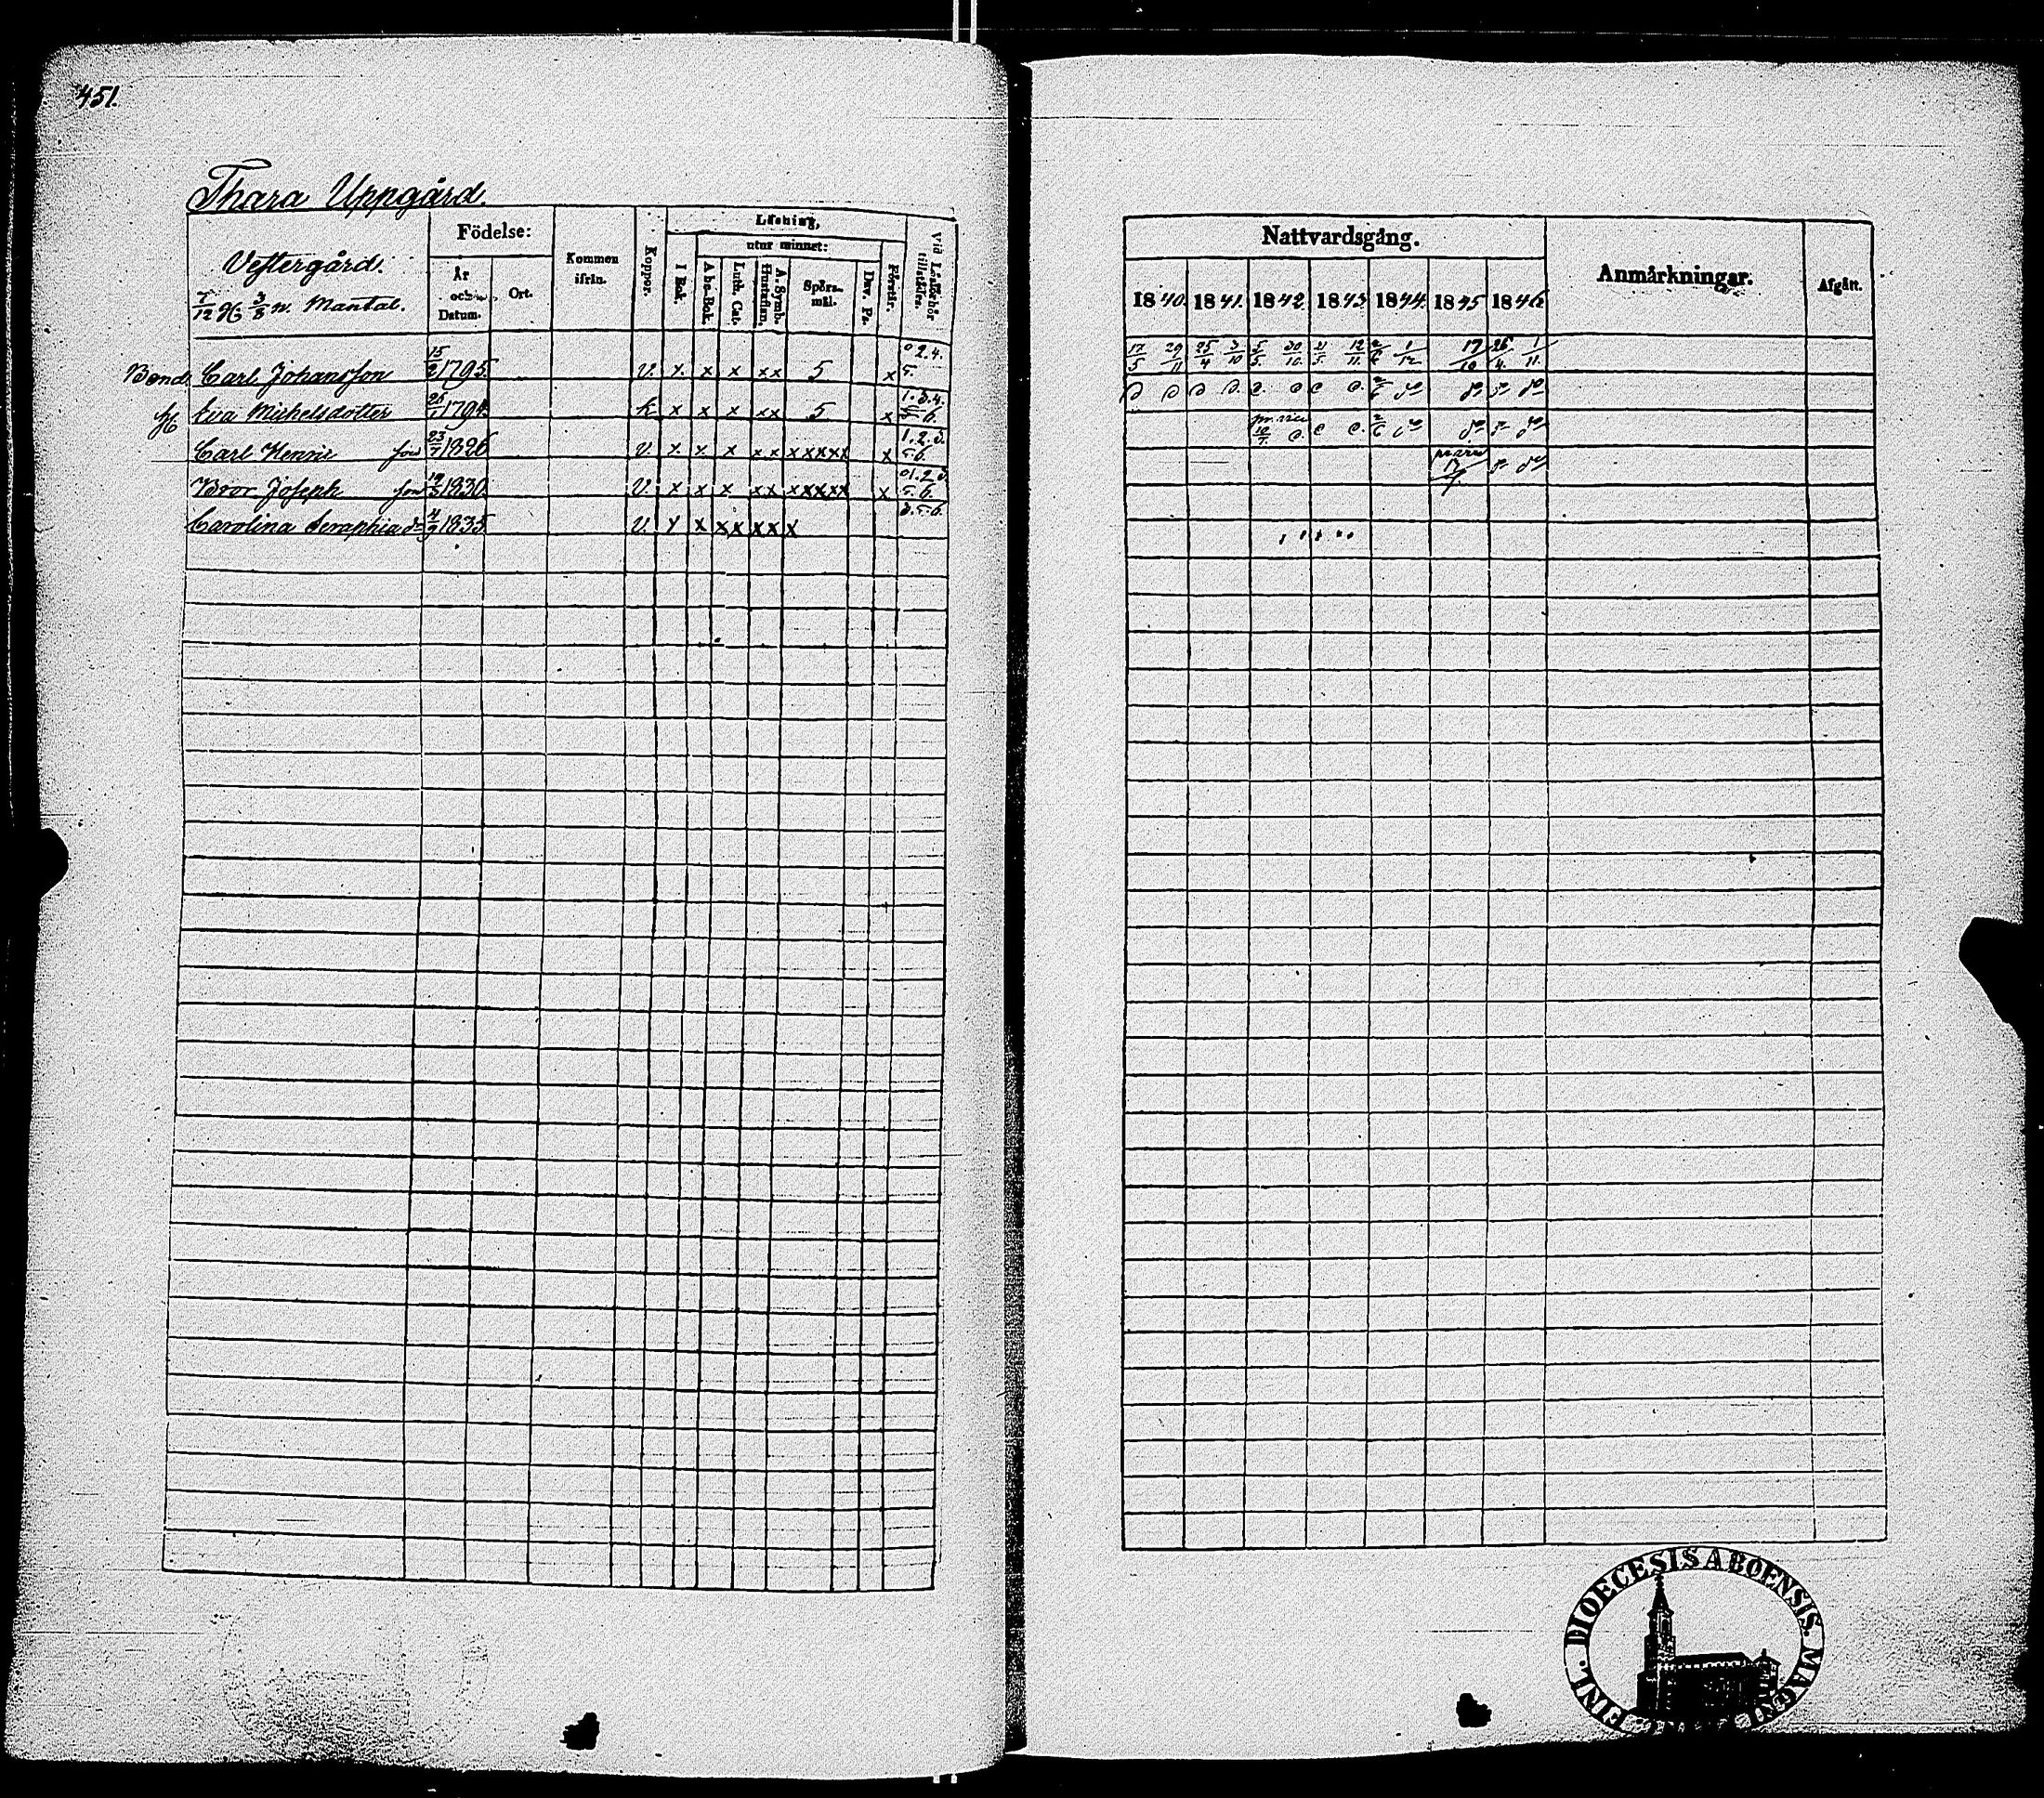 451.
Thara Uppgård.
Vestergård.
7/12 3/8 n. Mantal.
Födelse:
År och Datum.
Ort.
Kommen ifrån.
Koppor.
Läsning,
utur minnet:
I Bok.
Abc-Bok.
Luth. Cat.
A. Symb. Hustaflan.
Spörsmål.
Dav. Ps.
Förstår.
Vid Läsförhör tillstädes.
Bond. Carl Johansson 15/2 1795 V. x x x xx 5 x 0 2. 4. 5.
H Eva Michelsdotter 1794 k x x x xx 5 x 1. 3. 4. 5. 6.
Carl Henric son 23/7 1826 V. x x x xx xxxxx x 1. 2. 3. 5. 6.
Bror Joseph son 19/3 1830 V. x x x xx xxxxx x 01. 2. 3. 5. 6.
Carolina Seraphia 4/9 1835 V. x x xx xx x 3. 5. 6.
Nattvardsgång.
1840. 1841. 1842. 1843. 1844. 1845 1846
Anmärkningar.
Afgått.
17/5 29/11 25/4 3/10 5/5. 30/10. 21/5. 12/11. 2/6 1/12 17/10 26/4. 1/11.
pr. vice
10/7.
FINL. DIOECESIS ABOENSIS. MAGNI